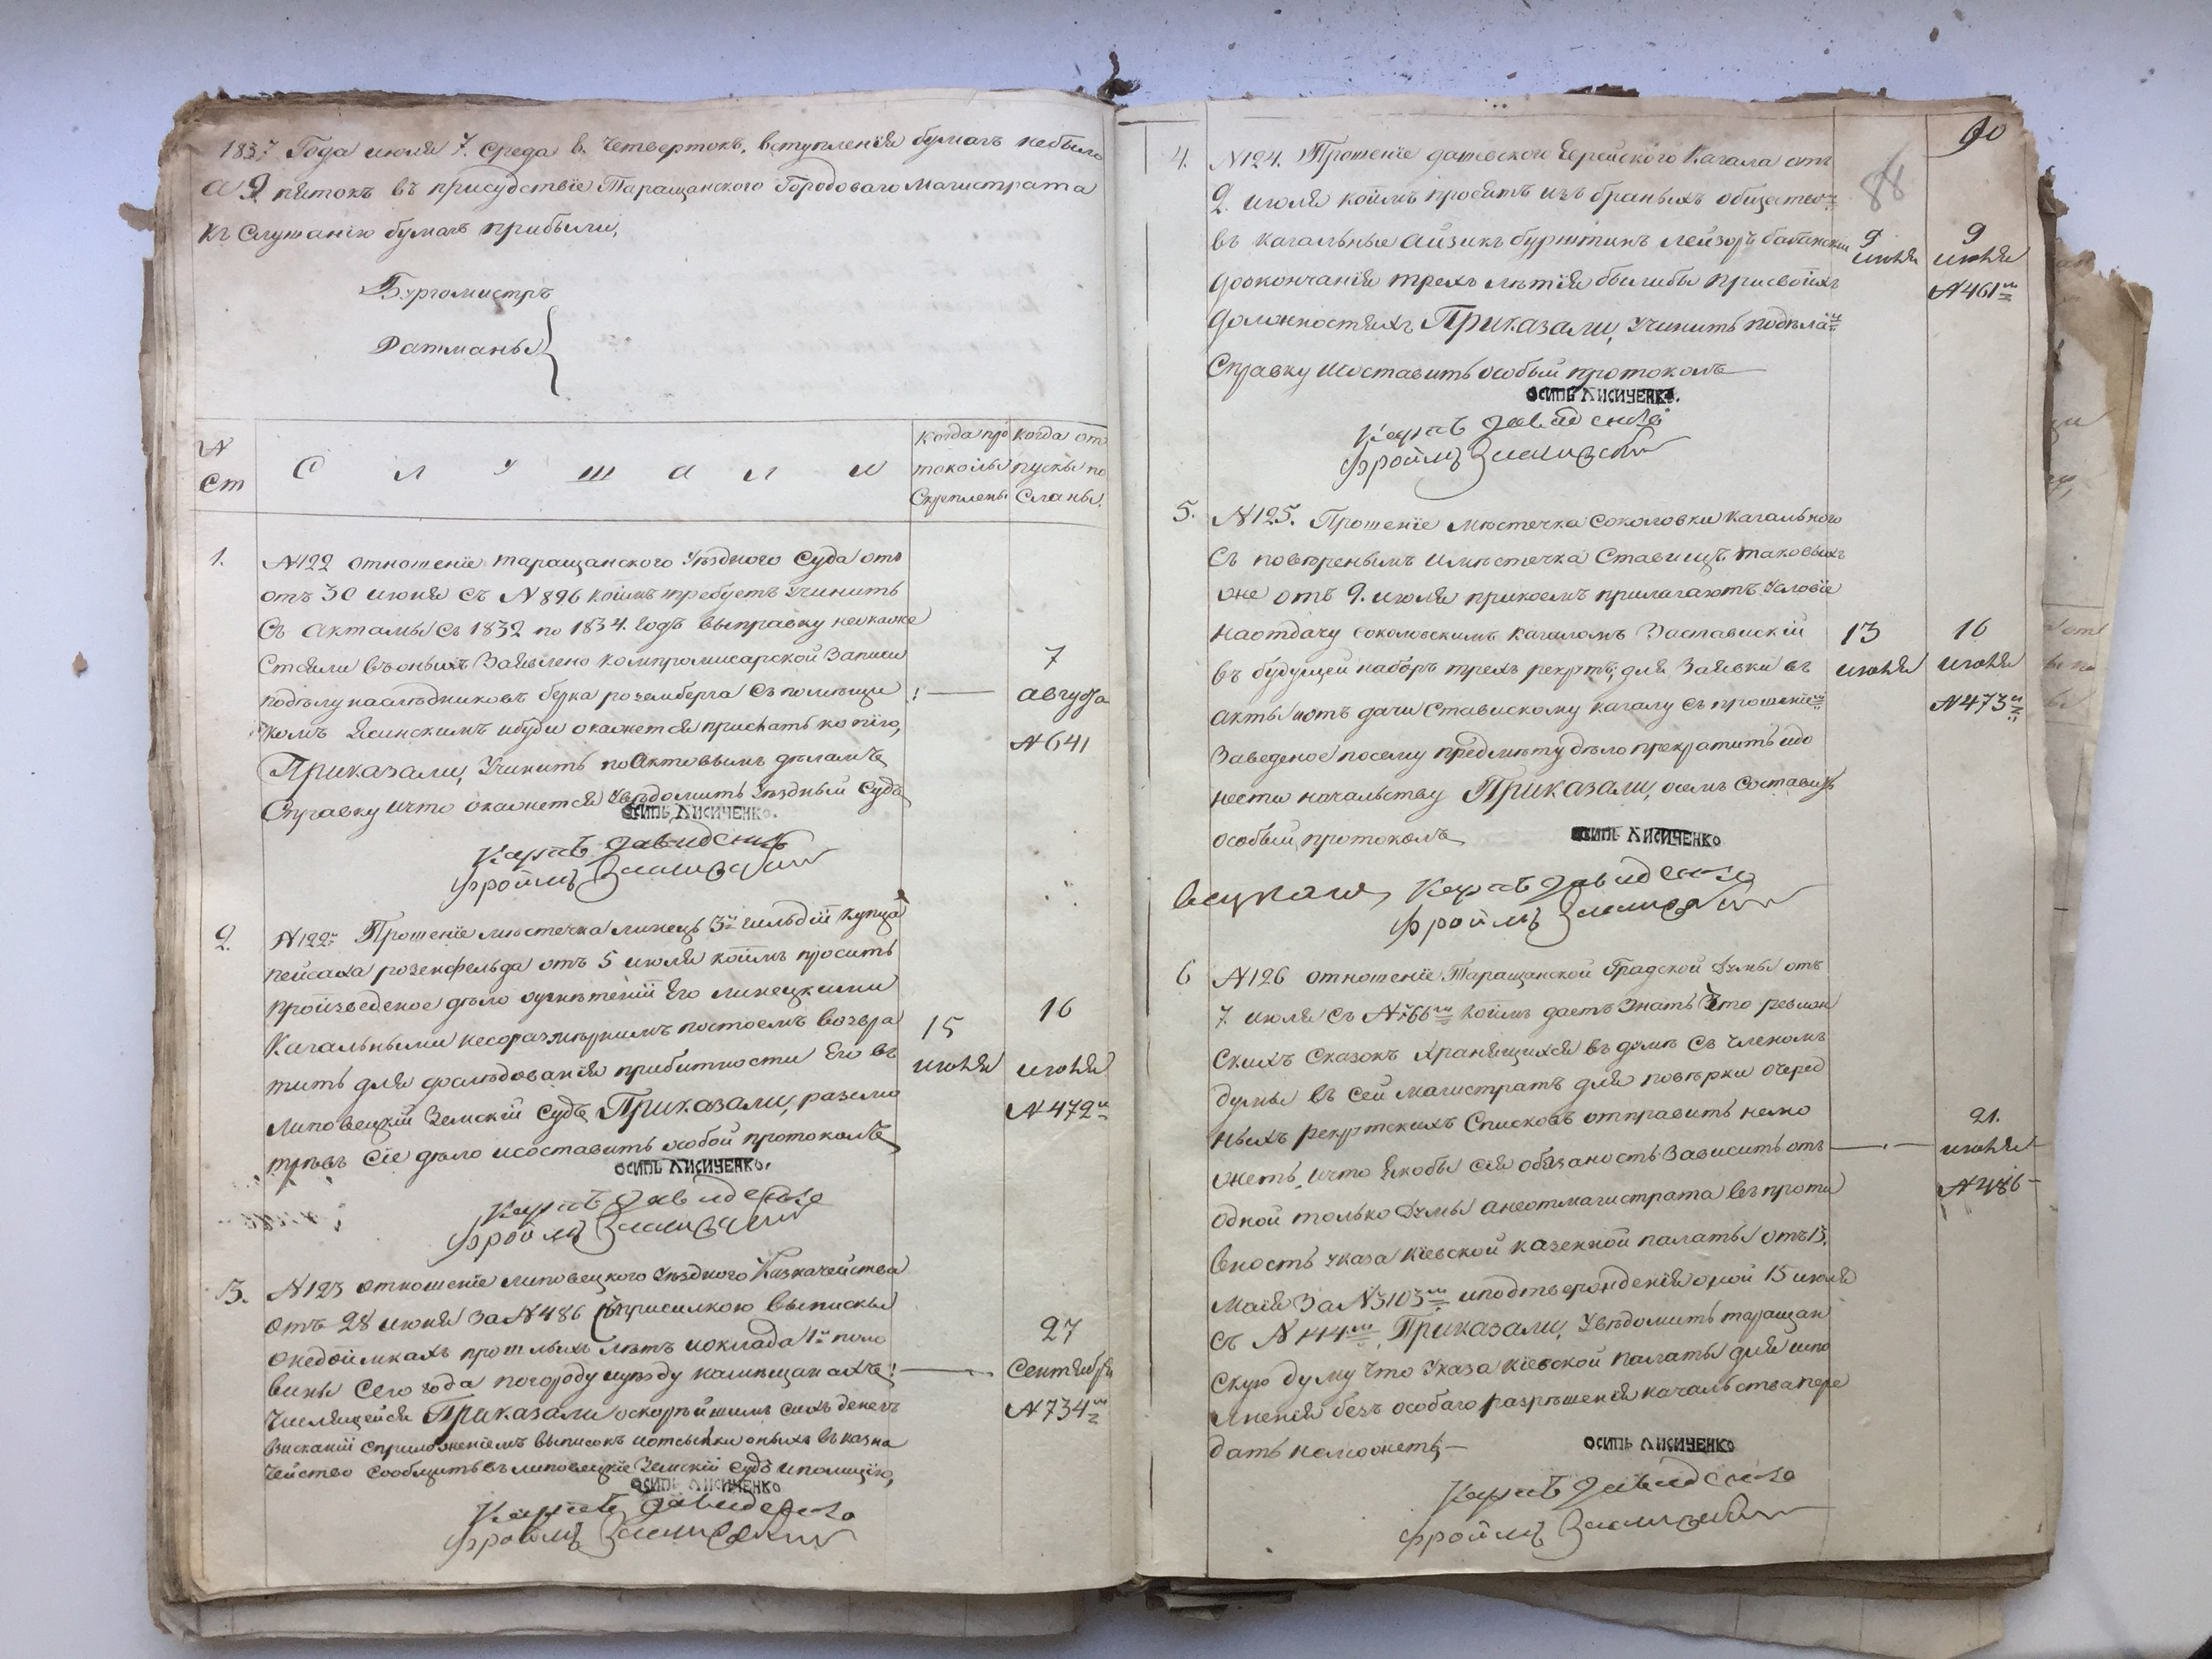 1837 Года июля 7. среда 8. четвертокъ, вступленія бумагъ небыло
а 9 пятокъ въ присудствіе Таращанского Городоваго Магистрата
къ Слушанію бумагъ прибыли,
Бургомистръ
Ратманы
№ Ст
С л у ш а л и
когда про такольы Скреплены
когда от пускы по Сланы.
1.
№122 отношеніе таращанского Уѣздного Суда отъ
отъ 30 июня съ №896 коимъ требуетъ учинить
Съ актамы съ 1832 по 1834. годъ выправку неокаже
Стяли въ оныхъ Заявлено компромисарской Записи
подѣлу наслѣдниковъ берка роземберга съ помѣщи
комъ Ясинскимъ ибуди окажется прислать копію,
Приказали, Учинить по актовымъ дѣламъ
Справку ичто окажется Увѣдомить Уѣздный Судъ
7
августа
№641
ОСИПЪ ЛИСИЧЕНКО.
Карпъ Давиденко
Фроимъ
2.
№122 Прошеніе мѣстечка линецъ 3й гильдіи купца
пейсаха розенфельда отъ 5 июля коимъ просить
произведеное дѣло оугнѣтеніи Его линецкими
Кагальными несоразмѣрнимъ постоемъ возвра
тить для дослѣдованія прибитности Его въ
липовецкій Земскій Судъ Приказали, разсмо
трѣвъ Сіе дѣло исоставить особой протоколъ
15
июля
16
июля
№472
ОСИПЪ ЛИСИЧЕНКО.
Карпъ Давиденко
Фроимъ
3.
№123 отношеніе липовецкого Уѣздного Казначейства
отъ 28 июня За №486 съприсилкою выпискы
онедоимкахъ прошлыхъ лѣтъ иоклада 1й поло
вины сего года погороду иуѣзду намѣщанахъ
Числящейся Приказали оскорѣйшимъ сихъ денегъ
взисканіи сприложеніемъ выписокъ иотсылки оныхъ въ казна
чейство сообщить въ липовецкіе Земскій Судъ иполицію,
27
Сентября
№734
ОСИПЪ ЛИСИЧЕНКО
Карпъ Давиденко
Фроимъ
90
88
4.
№124. Прошеніе Еврейского Кагала отъ
9. июля коимъ просятъ изъ браныхъ обществомъ
въ кагальные Айзикъ бурштинъ лейзоръ
доокончанія трехъ лѣтія былибы присвоихъ
должностяхъ Приказали, Учинить подѣламъ
Справку исоставить особый протоколъ
9
июля
9
июля
№461
ОСИПЪ ЛИСИЧЕНКО.
Карпъ Давиденко
Фроимъ
5.
№125. Прошеніе Мѣстечка Соколовки Кагального
Съ повѣренымъ имѣстечка Ставищъ таковыхъ
же отъ 9. июля прикоемъ прилагаютъ Условіе
наотдачу соколовскимъ кагаломъ Заставискій
въ будущей наборъ трехъ рекрутъ, для Заявки въ
акты иотъ дачи Ставискому кагалу съ прошеніемъ
Заведеное посему предмѣту дѣло прекратить идо
нести начальству Приказали, осемъ Составить
особый протоколъ
13
июля
16
июля
№473
ОСИПЪ ЛИСИЧЕНКО
Карпъ Давиденко
Фроимъ
6
№126 отношеніе Таращанской Градской Думы отъ
7. июля съ №766 коимъ даетъ Знать Что ревизи
Скихъ Сказокъ хранящихся въ думѣ съ членомъ
думы въ Сей магистратъ для повѣрки очеред
ныхъ рекрутскихъ Списковъ отправить немо
жетъ, ичто Якобы сія обязаность Зависить отъ
одной только Думы анеотмагистрата въ проти
вность указа Кіевской казенной палаты отъ 13.
Маія За №3103 иподтвержденія оной 15 июля
съ №144 Приказали, Увѣдомить таращан
скую думу Что Указа кіевской палаты для испо
лненія безъ особаго разрѣшенія начальства пере
дать неможетъ
21.
июля
№486
ОСИПЪ ЛИСИЧЕНКО
Карпъ Давиденко
Фроимъ